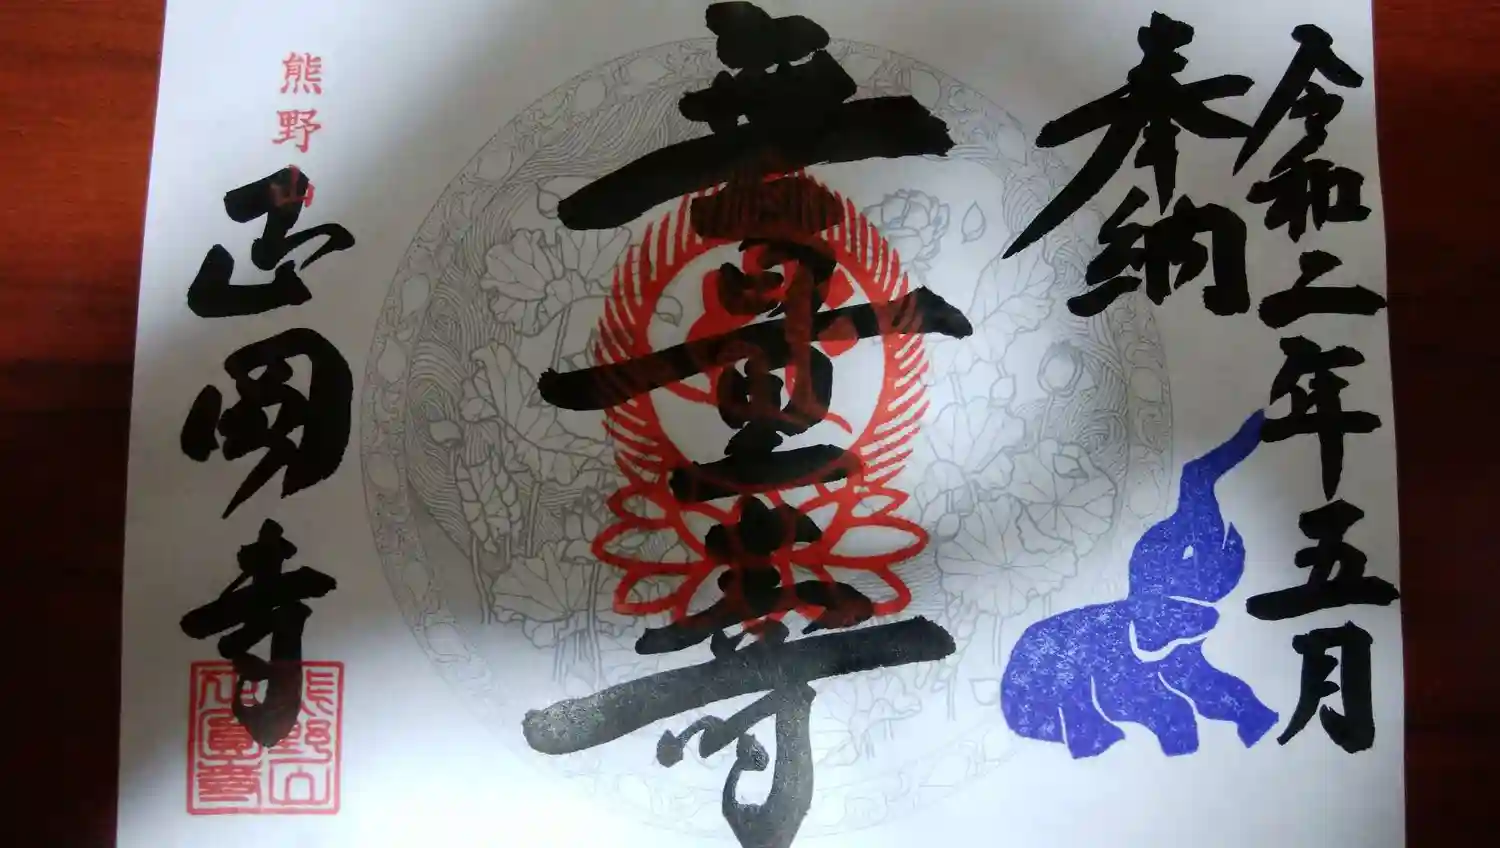 令和二年五月
奉納
無量壽
熊野山
正圓寺